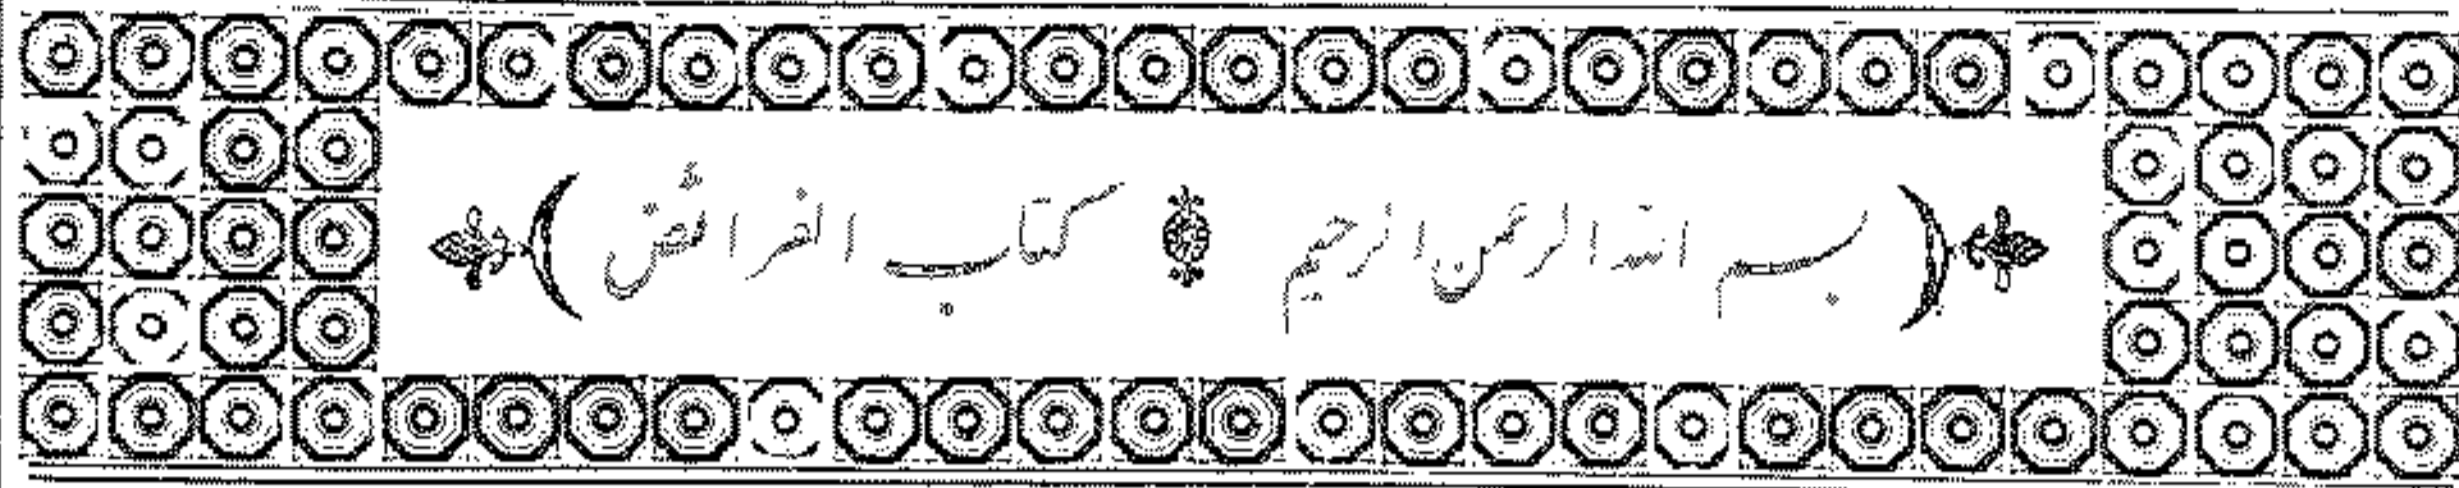 ( بسم الله الرحمن الرحيم * كتاب الفرائض )